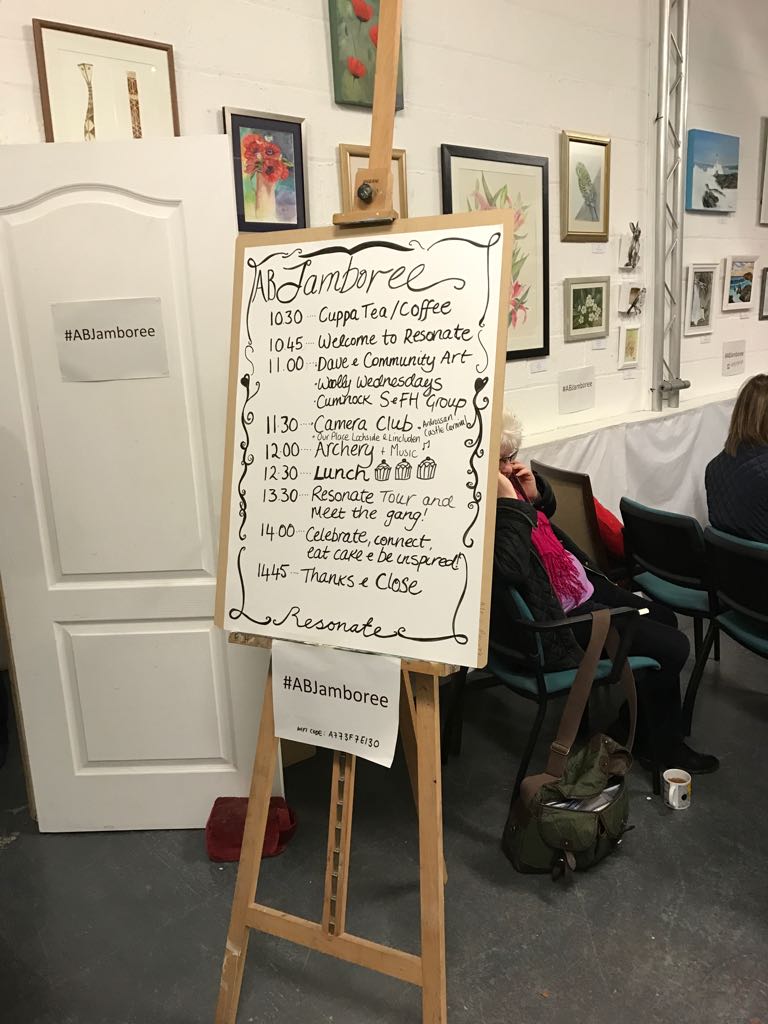 #ABJamboree
AB Jamboree
1030 ... Cuppa Tea/Coffee
1045 ... Welcome to Resonate
11.00 ... • Dave & Community Art
• Woolly Wednesdays
• Cumnock S&FH Group
11.30 ... • Camera Club • Ardrossan Castle Carnival
• Our Place Lochside & Lincluden
12.00 ... Archery + Music ♫
12:30 ... Lunch
13.30 ... Resonate Tour and
meet the gang!
1400 ... Celebrate, connect,
eat cake & be inspired!
1445 ... Thanks & Close
Resonate
#ABJamboree
WIFI CODE: A773F7E130
#ABJamboree